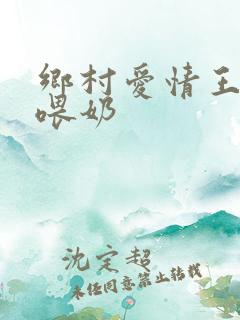 鄉村愛情王
喂奶
沈定超
未经同意禁止转载